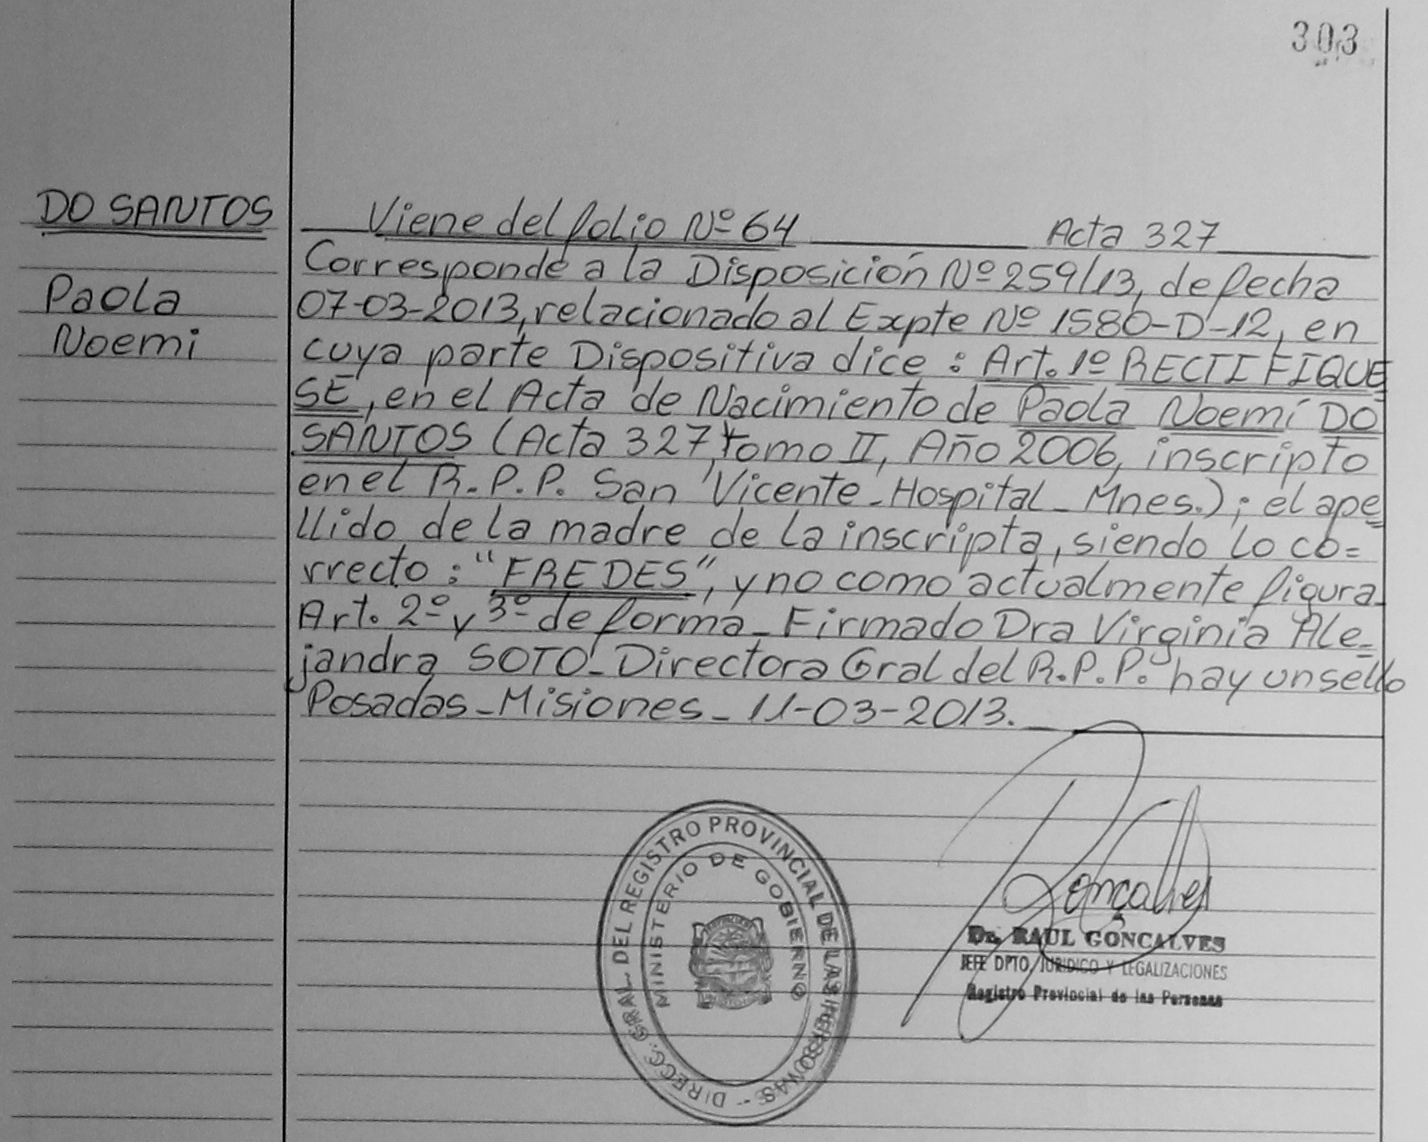 303
DO SANTOS
Paola
Noemi
Viene del folio Nº 64 Acta 327
Corresponde a la Disposición Nº 259/13, de fecha
07-03-2013, relacionado al Expte Nº 1580-D-12, en
cuya parte Dispositiva dice: Art. 1º RECTIFIQUE
SE, en el Acta de Nacimiento de Paola Noemí DO
SANTOS (Acta 327, Tomo II, Año 2006, inscripto
en el R.P.P. San Vicente-Hospital-Mnes.); el ape=
llido de la madre de la inscripta, siendo lo co=
rrecto: "FREDES", y no como actualmente figura-
Art. 2º y 3º de forma-Firmado Dra Virginia Ale=
jandra SOTO-Directora Gral del R.P.P. hay un sello
Posadas-Misiones-11-03-2013.
DIRECC. GRAL. DEL REGISTRO PROVINCIAL DE LAS PERSONAS -
MINISTERIO DE GOBIERNO
Gonçalves
Dr. RAUL GONCALVES
JEFE DPTO. JURIDICO Y LEGALIZACIONES
Registro Provincial de las Personas